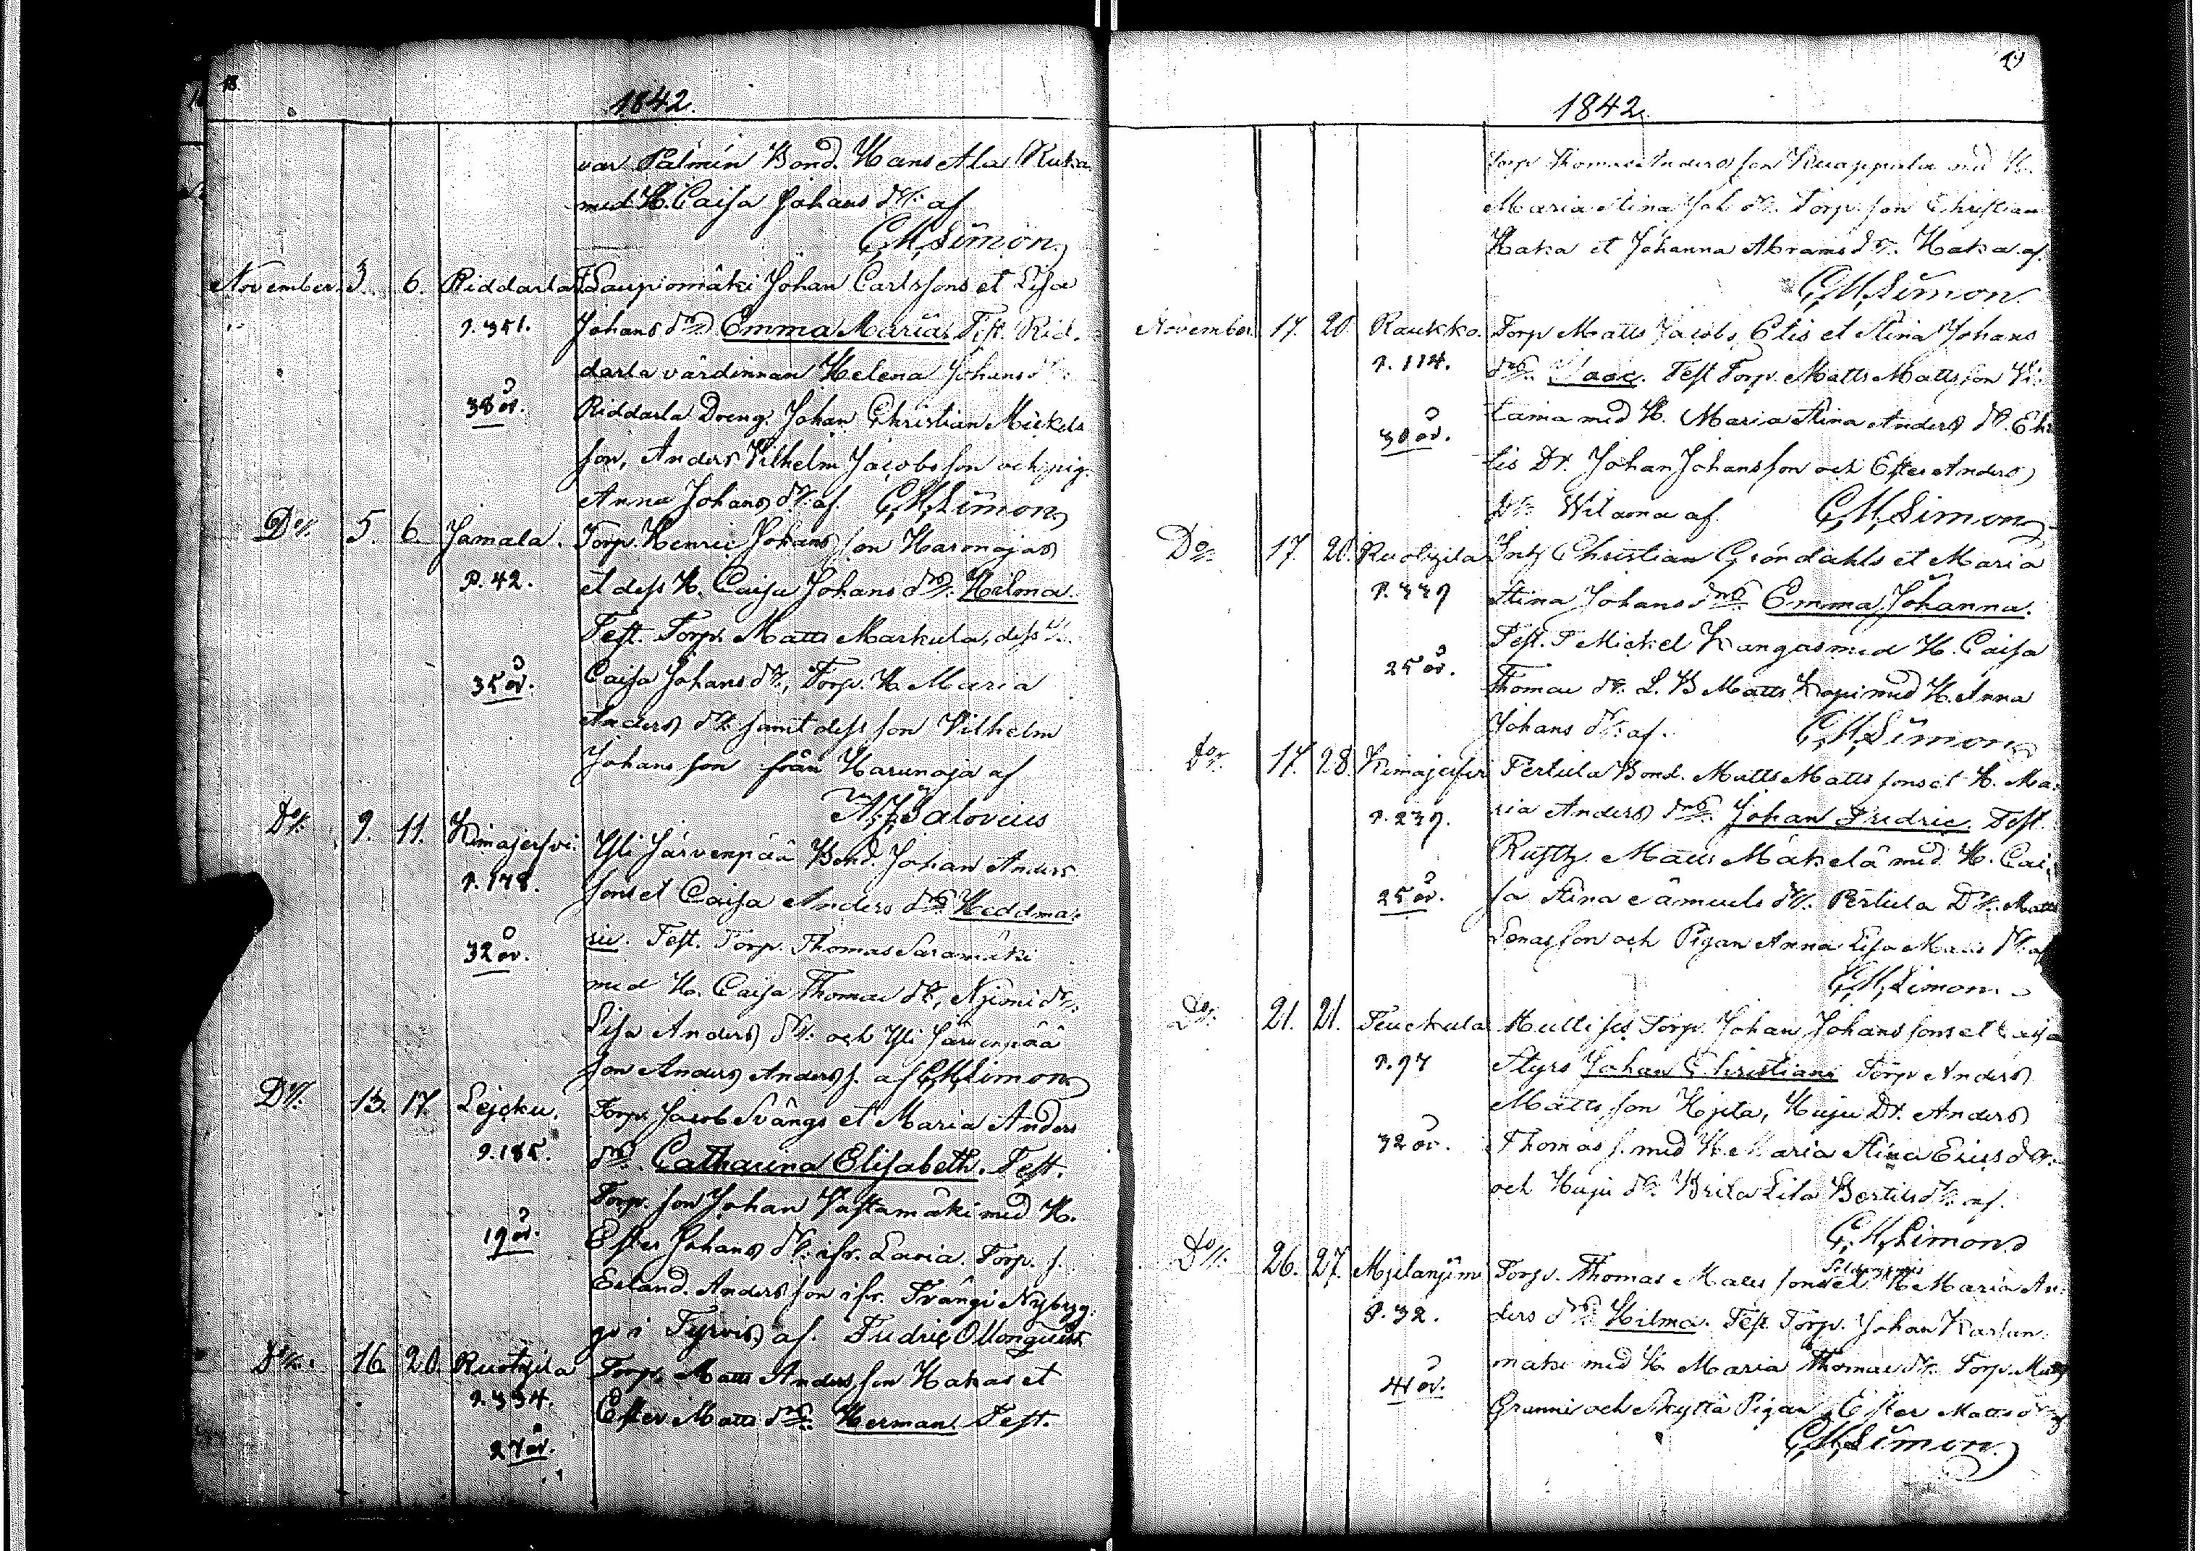 18.
1842.
var Palmin Bond. Hans Ala Ruka
med H. Caisa Johans dr. af
C.M. Simon
November. 3. 6. Riddarla T Laupiomäki Johan Carlssons et Lisa
p. 351. Johans drs Emma Maria. Test. Rid-
darla värdinnan Helena Johans dr.
38 år. Riddarla Dreng. Johan Christian Mickels
son, Anders Vilhelm Jacobsson och pig.
Anna Johans dr. af. C.M. Simon
Do. 5. 6. Jamala. Torp. Henric Johansson Haronojas
p. 42. et dess H. Caisa Johans drs. Hilma.
Test. Torp. Matts Markula, dess H.
35 år. Caisa Johans dr., Torp. H. Maria
Anders dr. samt dess son Vilhelm
Johansson från Harunoja af
Salovius
Do. 9. 11. Kimajerfvi. Yli Järvenpää Bond. Johan Anders
p. 178. sons et Caisa Anders drs Heddma-
32 år. ric. Test. Torp. Thomas Saramäki
med H. Caisa Thomae dr., Njemi dr.
Lisa Anders dr. och Yli Järvenpää
son Anders Anders s. af C.M. Simon
Do. 13. 17. Lejoku. Torp. Jacob Svängs et Maria Anders
p. 185. drs. Catharina Elisabeth. Test.
Torp. son Johan Vastamäki med H.
19 år. Ester Johans dr. ifr. Lauria. Torp. s.
Erland. Andersson ifr. Trängi Nybyg-
ge i Tyrvis af. Fredric Ollonquist
Do. 16. 20. Ruotzila Torp. Matts Andersson Hakas et
p. 334. Ester Matts drs. Herman. Test.
27 år.
19
1842.
Torp. Thomas Andersson Knappala med H.
Maria Stina Joh dr. Torp. son Christian
Haka et Johanna Abrams dr. Haka af.
C.M. Simon.
November. 17. 20. Raukko. Torp Matts Jacobs Elis et Stina Johans
p. 114. drs. Isaac. Test Torp. Matts Mattsson Vi-
30 år. lama med H. Maria Stina Anders dr. Eh-
lis Dr. Johan Johansson och Ester Anders
dr. Wilama af. C.M. Simon
Do. 17. 20. Ruotzila Christian Gröndahls et Maria
p. 339 Stina Johans drs. Emma Johanna.
Test. T Mickel Kangas med H. Caisa
25 år. Thomae dr. L. B Matts Kopi med H. Anna
Johans dr. af. C.M. Simon
Do. 17. 28. Kimajerfvi Pertula Bond. Matts Mattssons et H. Ma-
p. 239. ria Anders drs. Johan Fredric. Test.
Rusth. Matts Mäkelä med. H. Cai-
25 år. sa Stina Samuels dr. Pertula Dr. Matts
Lenasson och Pigan Anna Lisa Matts dr. af
C.M. Simon.
Do. 21. 21. Teuckula Torp. Johan Johanssons et Caisa
p. 97 Styrs Johan Christian Torp Anders
Mattsson Kojila, Huju Dr. Anders
32 år. Thomas s. med H. Maria Stina Erics dr.
och Huju dr. Brita Lisa Bertils dr. af.
C.M. Simon
Do. 26. 27. Mjilanjimi Torp. Thomas Matts sons et H. Maria An-
p. 32. ders drs Hilma. Test. Torp. Johan Karjan-
maki med H. Maria Thomae dr. Torp. Matts
41 år. Granni och Skyttä Pigan Ester Matts dr. af
C.M. Simon.